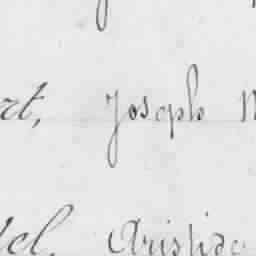 rt, Joseph
el, Aristide